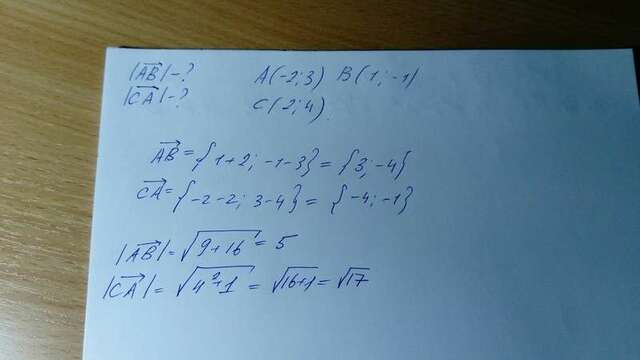 |AB| - ? A(-2; 3) B(1; -1)
|CA| - ? C(2; 4)
AB = {1+2; -1-3} = {3; -4}
CA = {-2-2; 3-4} = {-4; -1}
|AB| = √9+16 = 5
|CA| = √4²+1 = √16+1 = √17